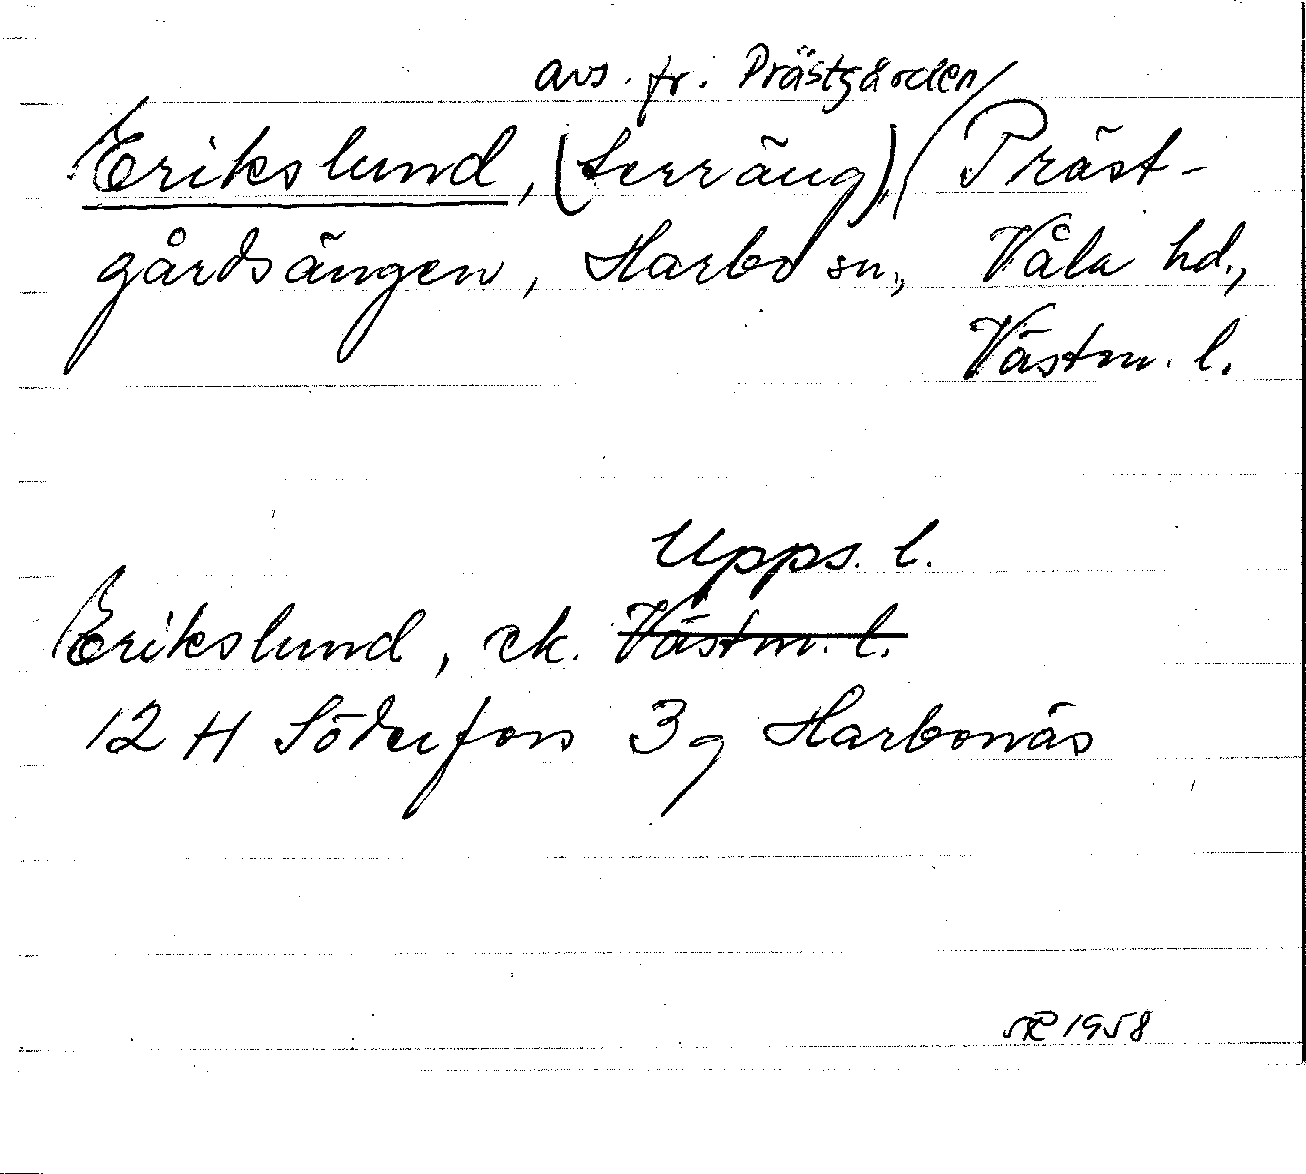 avs. fr. Prästgården/
Erikslund, (terräng), (Präst-
gårdsängen, Harbo sn., Våla hd.,
Västm. l.
Upps. l.
Erikslund, ek. Västm. l.
12 H Söderfors 3g Harbonäs
1958